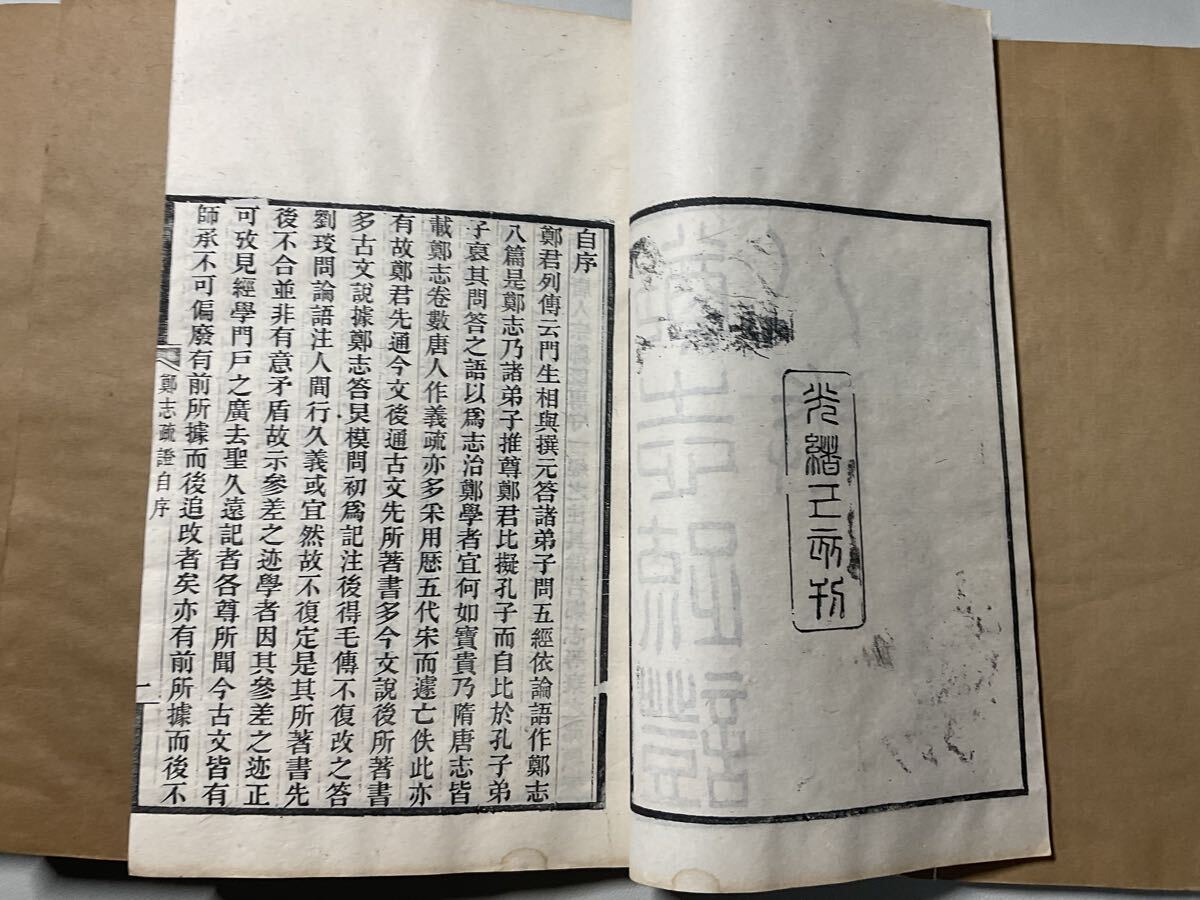 光緒己亥刊
自序
鄭君列傳云門生相與撰元答諸弟子問五經依論語作鄭志
八篇是鄭志乃諸弟子推尊鄭君比擬孔子而自比於孔子弟
子裒其問答之語以爲志治鄭學者宜何如寶貴乃隋唐志皆
載鄭志卷數唐人作義疏亦多采用歷五代宋而遽亡佚此亦
有故鄭君先通今文後通古文先所著書多今文說後所著書
多古文說據鄭志答炅模問初爲記注後得毛傳不復改之答
劉琰問論語注人閒行久義或宜然故不復定是其所著書先
後不合並非有意矛盾故示參差之迹學者因其參差之迹正
可攷見經學門戸之廣去聖久遠記者各尊所聞今古文皆有
師承不可偏廢有前所據而後追改者矣亦有前所據而後不
鄭志疏證自序
一